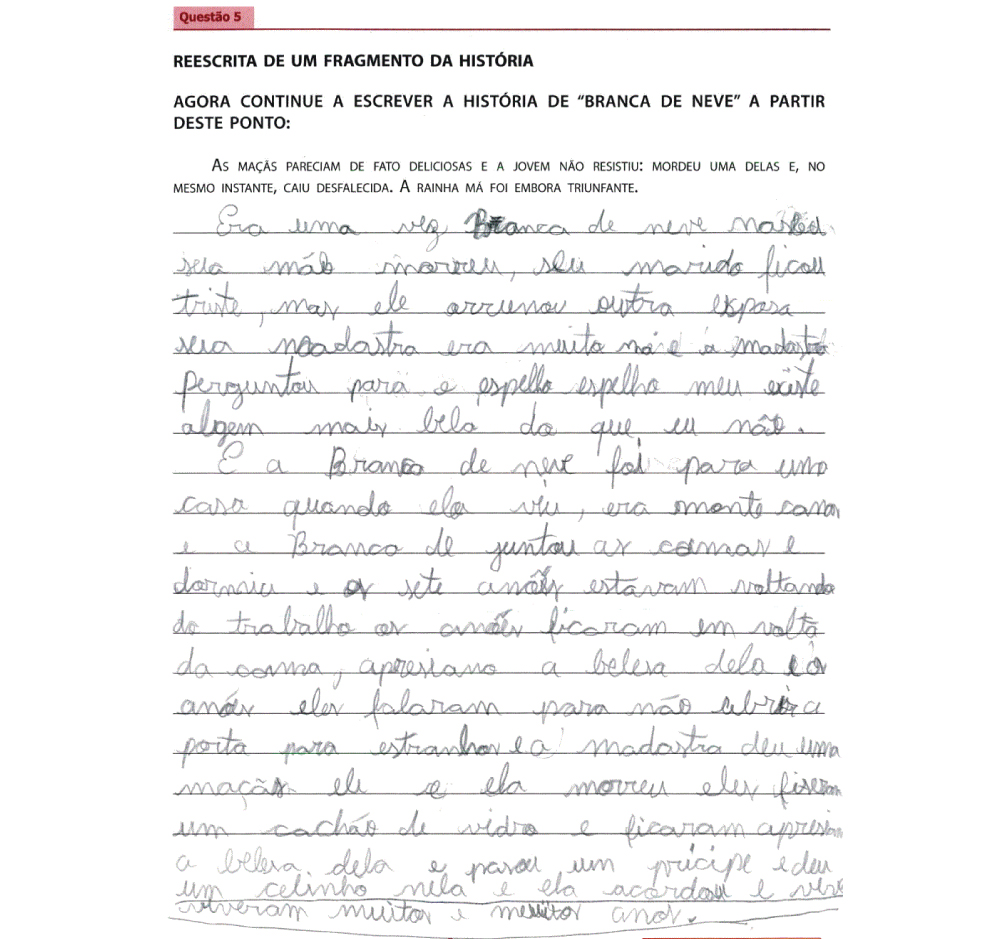 Questão 5
REESCRITA DE UM FRAGMENTO DA HISTÓRIA
AGORA CONTINUE A ESCREVER A HISTÓRIA DE “BRANCA DE NEVE” A PARTIR
DESTE PONTO:
AS MAÇÃS PARECIAM DE FATO DELICIOSAS E A JOVEM NÃO RESISTIU: MORDEU UMA DELAS E, NO
MESMO INSTANTE, CAIU DESFALECIDA. A RAINHA MÁ FOI EMBORA TRIUNFANTE.
Era uma vez Branca de neve
sua mão morreu, seu marido ficou
triste, mas ele arrumou outra esposa
sua madastra era muito má e a madastra
Perguntou para o espello espelho meu existe
algem mais bela do que eu não.
E a Branca de neve foi para uma
casa quando ela viu, era monte camas
e a Branca de juntou as camas e
dormiu e os sete anões estavam voltando
do trabalho os anões ficaram em volta
da coma, apresiano a belesa dela e os
anões eles falaram para não abrir a
porta para estranhos e a madastra deu uma
maçãs ele e ela morreu eles fiseram
um cachão de vidro e ficaram
a belesa dela e pasou um prícipe e deu
um celinho nela e ela acordou e
viveram muitos e muitos anos.